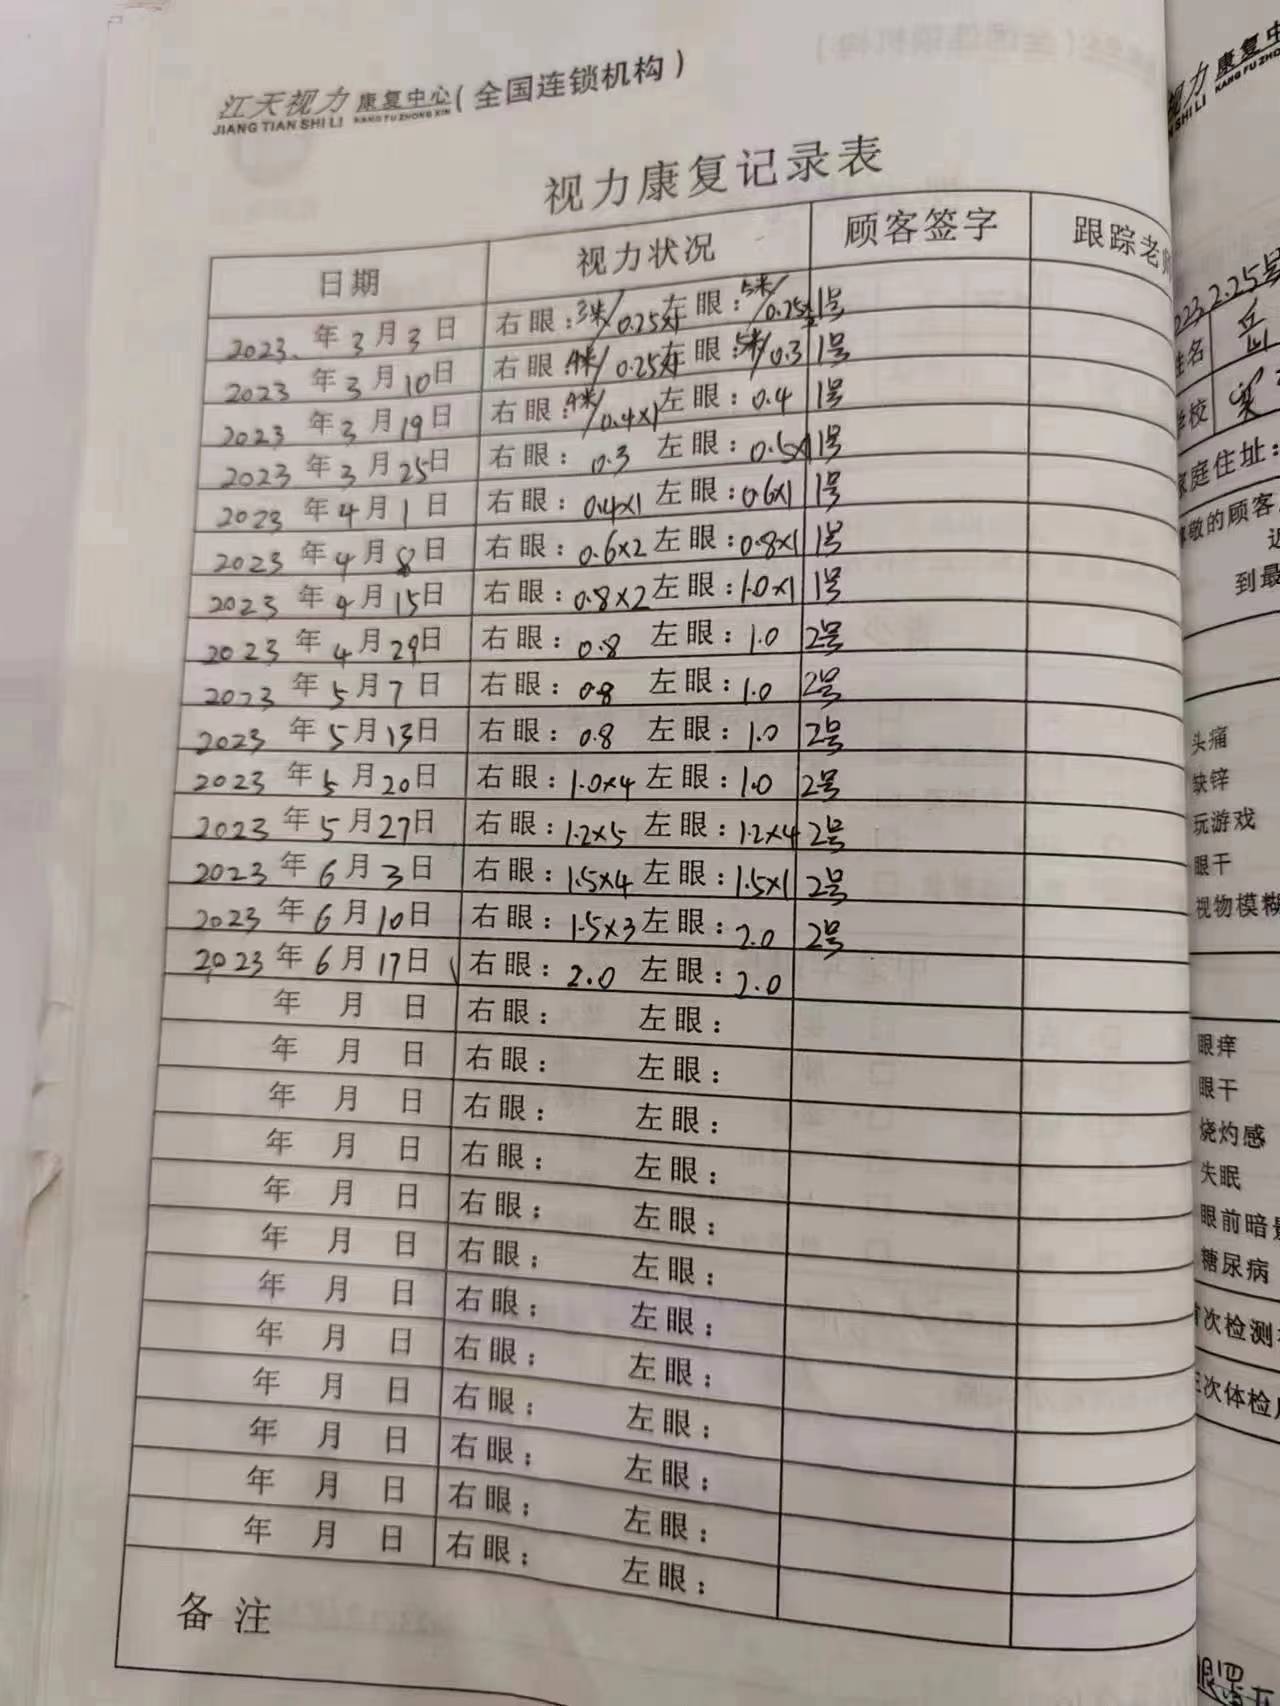 江天视力康复中心(全国连锁机构)
JIANG TIAN SHI LI KANG FU ZHONG XIN
视力康复记录表
日期 视力状况 顾客签字 跟踪老
2023年3月3日 右眼:3米/0.25 左眼:5米/0.25 1号
2023年3月10日 右眼:4米/0.25 左眼:5米/0.3 1号
2023年3月19日 右眼:4米/0.4×1 左眼:0.4 1号
2023年3月25日 右眼:0.3 左眼:0.5×1 1号
2023年4月1日 右眼:0.4×1 左眼:0.6×1 1号
2023年4月8日 右眼:0.6×2 左眼:0.8×1 1号
2023年4月15日 右眼:0.8×2 左眼:1.0×1 1号
2023年4月29日 右眼:0.8 左眼:1.0 2号
2023年5月7日 右眼:0.8 左眼:1.0 2号
2023年5月13日 右眼:0.8 左眼:1.0 2号
2023年5月20日 右眼:1.0×4 左眼:1.0 2号
2023年5月27日 右眼:1.2×5 左眼:1.2×4 2号
2023年6月3日 右眼:1.5×4 左眼:1.5×1 2号
2023年6月10日 右眼:1.5×3 左眼:2.0 2号
2023年6月17日 右眼:2.0 左眼:2.0
年 月 日 右眼: 左眼:
年 月 日 右眼: 左眼:
年 月 日 右眼: 左眼:
年 月 日 右眼: 左眼:
年 月 日 右眼: 左眼:
年 月 日 右眼: 左眼:
年 月 日 右眼: 左眼:
年 月 日 右眼: 左眼:
年 月 日 右眼: 左眼:
年 月 日 右眼: 左眼:
年 月 日 右眼: 左眼:
年 月 日 右眼: 左眼:
备注
视力康复中
SHI LI KANG FU ZHO
2.25号
姓名 岳
学校
家庭住址:
尊敬的顾客
近
到最
头痛
缺锌
玩游戏
眼干
视物模糊
眼痒
眼干
烧灼感
失眠
眼前暗
糖尿病
首次检测
次体检